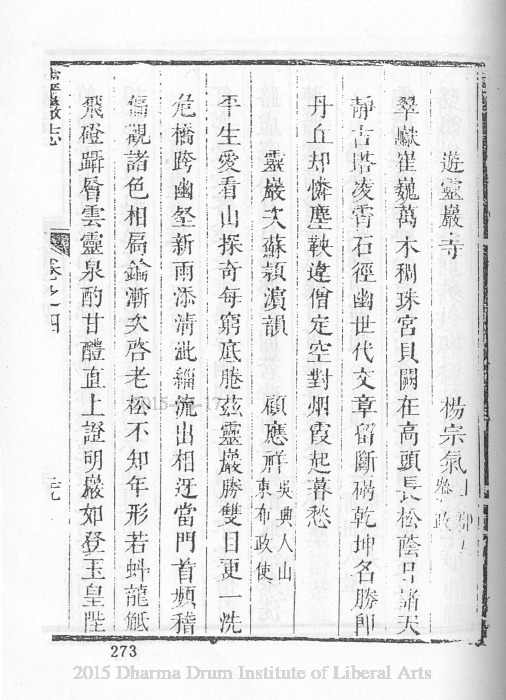 遊靈巖寺 楊宗氣
翠巘崔巍萬木稠珠宮貝闕在高頭長松蔭日諸天
靜古塔凌霄石徑幽世代文章留斷碣乾坤名勝卽
丹丘却憐塵鞅違僧定空對烟霞起暮愁
靈巖次蘇潁濱韻 顧應祥 吳興人山東布政使
平生愛看山探奇每窮底睠茲靈巖勝雙目更一洗
危橋跨幽壑新雨添清泚緇流出相迓當門首頻稽
徧觀諸色相扃鑰漸次啓老松不知年形若蚪龍觝
飛磴躡層雲靈泉酌甘醴直上證明巖如登玉皇陛
靈巖志 卷之四
273
2015 Dharma Drum Institute of Liberal Arts